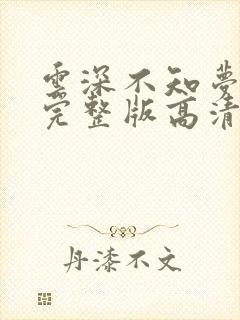 雲深不知夢
完整版高清
丹漆不文